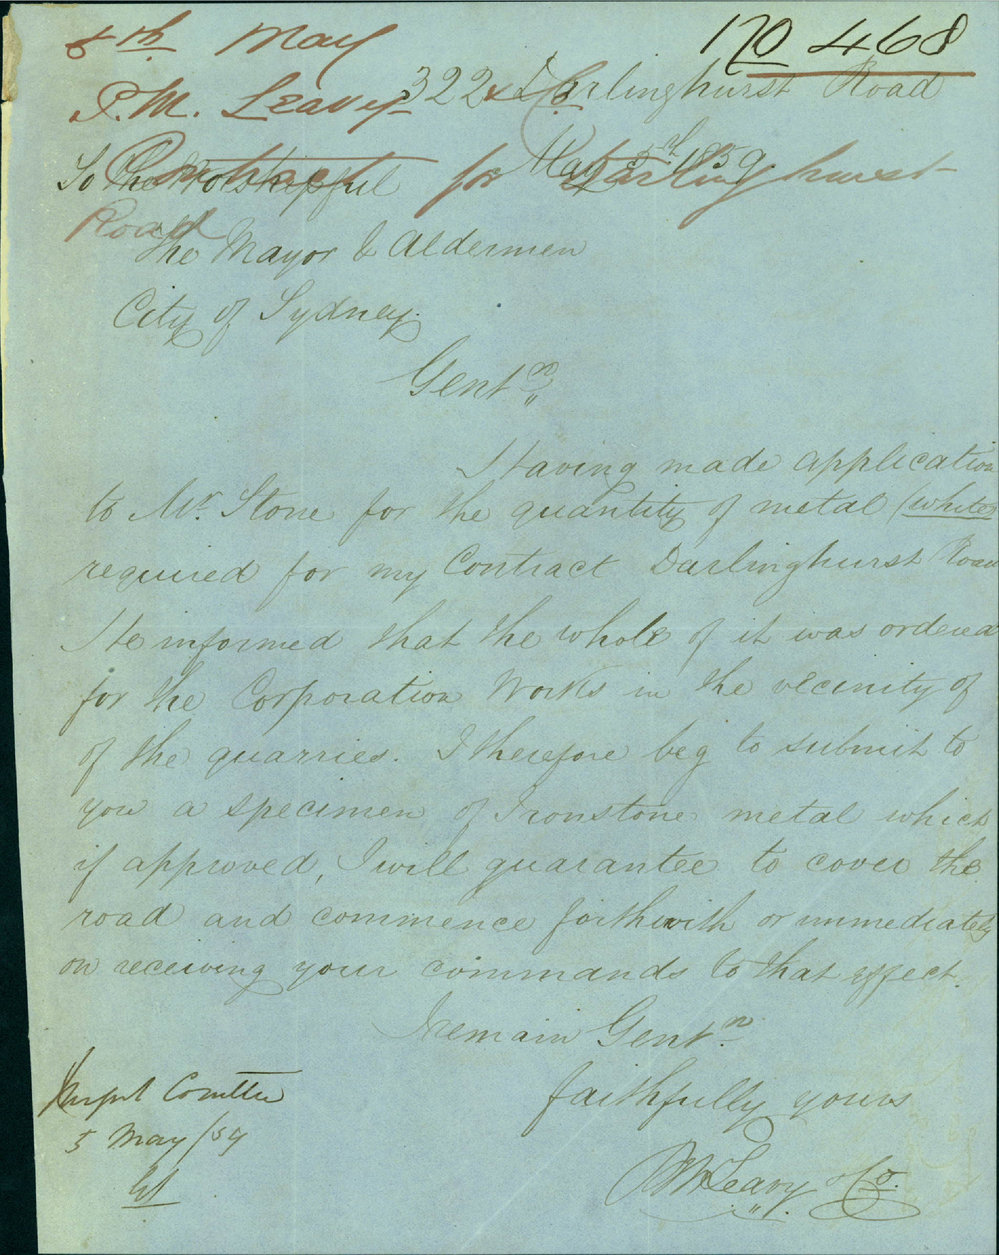 170 468
5th May
P. M. Leavy
Contract for Darlinghurst
Road
322 Darlinghurst Road
May 5th 1859
To the Worshipful
The Mayor & Aldermen
City of Sydney.
Gentn
Having made application
to Mr. Stone for the quantity of metal (white)
required for my Contract Darlinghurst Road
He informed that the whole of it was ordered
for the Corporation Works in the vicinity of
of the quarries. I therefore beg to submit to
you a specimen of Ironstone metal which
if approved, I will guarantee to cover the
road and commence forthwith or immediately
on receiving your commands to that effect.
I remain Gentn
faithfully yours
P M Leavy & Co.
Impt Comttee
5 May/59